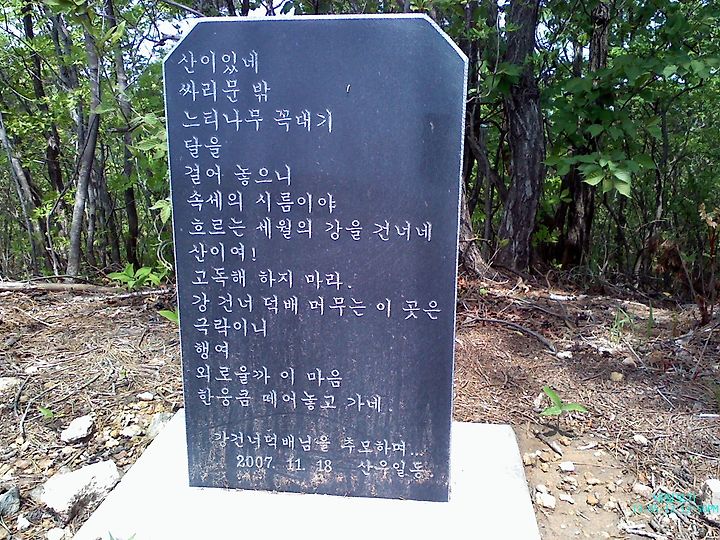 산이있네
싸리문 밖
느티나무 꼭대기
달을
걸어 놓으니
속세의 시름이야
흐르는 세월의 강을 건너네
산이여!
고독해 하지 마라.
강 건너 덕배 머무는 이 곳은
극락이니
행여
외로울까 이 마음
한웅큼 떼어놓고 가네.
강건너덕배님을 추모하며...
2007. 11. 18 산우일동